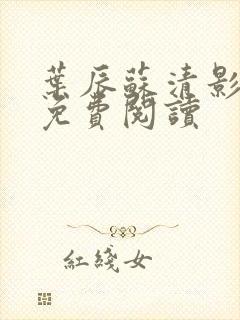 葉辰蘇清影
免費閱讀
紅綫女